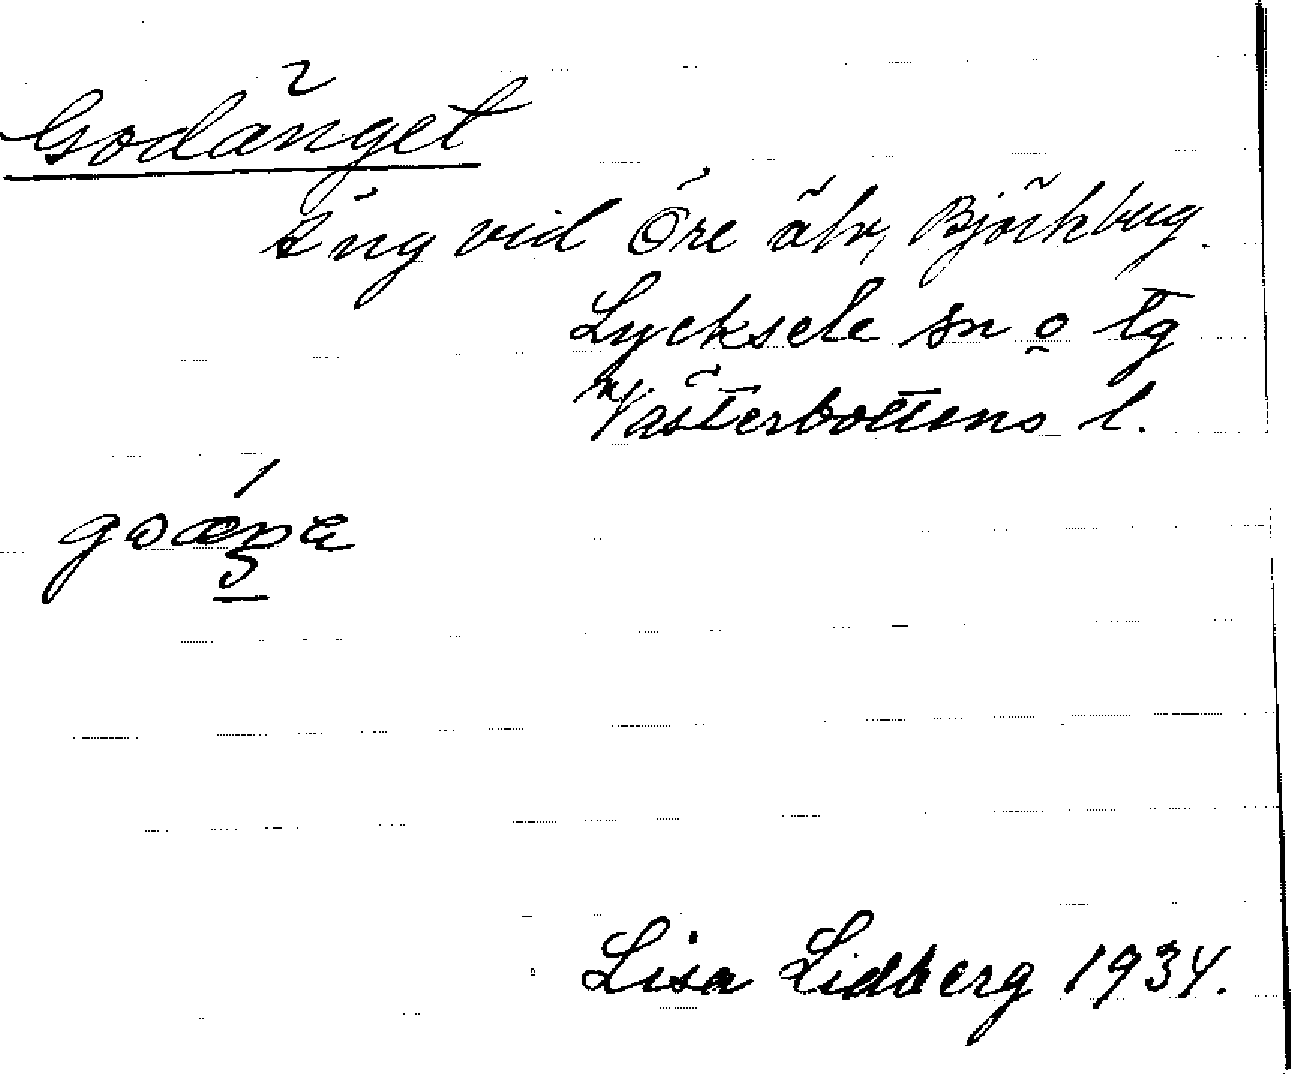 Godänget
Äng vid Öre älv, Björkberg.
Lycksele sn o lg
Västerbottens l.
Lisa Lidberg 1934.